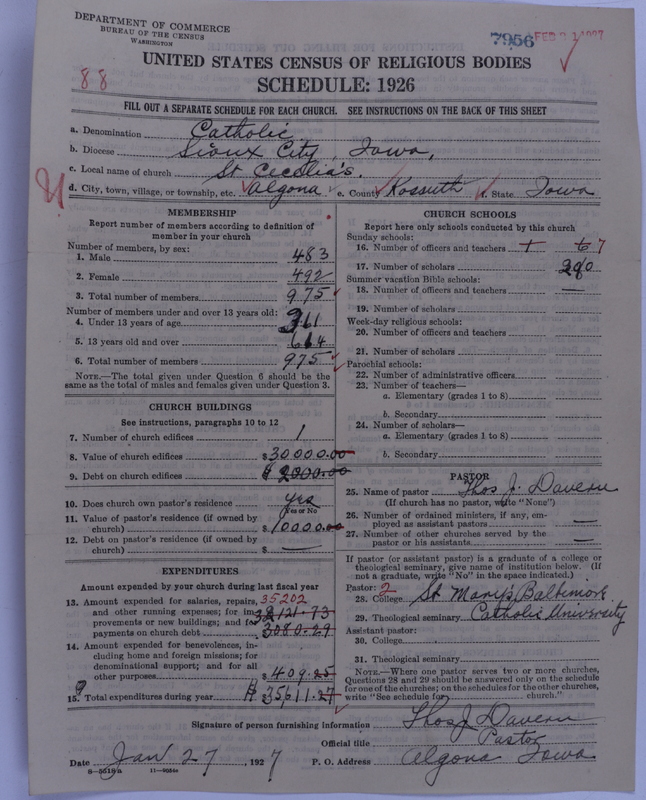 DEPARTMENT OF COMMERCE
BUREAU OF THE CENSUS
WASHINGTON
7956 FEB
88
UNITED STATES CENSUS OF RELIGIOUS BODIES
SCHEDULE: 1926
FILL OUT A SEPARATE SCHEDULE FOR EACH CHURCH. SEE INSTRUCTIONS ON THE BACK OF THIS SHEET
a. Denomination Catholic
b. Diocese Sioux City, Iowa,
c. Local name of church St Cecelia's.
d. City, town, village, or township, etc. Algona e. County Kossuth f. State Iowa
MEMBERSHIP
Report number of members according to definition of
member in your church
Number of members, by sex:
1. Male 483
2. Female 492
3. Total number of members 975
Number of members under and over 13 years old:
4. Under 13 years of age 361
5. 13 years old and over 614
6. Total number of members 975
NOTE.—The total given under Question 6 should be the
same as the total of males and females given under Question 3.
CHURCH BUILDINGS
See instructions, paragraphs 10 to 12
7. Number of church edifices 1
8. Value of church edifices $30000.00
9. Debt on church edifices $2000.00
10. Does church own pastor's residence yes
Yes or No
11. Value of pastor's residence (if owned by
church) $10000.00
12. Debt on pastor's residence (if owned by
church) $ —
EXPENDITURES
Amount expended by your church during last fiscal year
13. Amount expended for salaries, repairs, 35202
and other running expenses; for im-
provements or new buildings; and for 32121.73
payments on church debt 3080.29
14. Amount expended for benevolences, in-
cluding home and foreign missions; for
denominational support; and for all
other purposes $409.25
15. Total expenditures during year $35611.27
CHURCH SCHOOLS
Report here only schools conducted by this church
Sunday schools:
16. Number of officers and teachers 1 6 7
17. Number of scholars 280
Summer vacation Bible schools:
18. Number of officers and teachers —
19. Number of scholars
Week-day religious schools:
20. Number of officers and teachers
21. Number of scholars
Parochial schools:
22. Number of administrative officers
23. Number of teachers—
a. Elementary (grades 1 to 8)
b. Secondary
24. Number of scholars—
a. Elementary (grades 1 to 8)
b. Secondary
PASTOR
25. Name of pastor Thos J. Davern
(If church has no pastor, write "None")
26. Number of ordained ministers, if any, em-
ployed as assistant pastors —
27. Number of other churches served by the
pastor or his assistants —
If pastor (or assistant pastor) is a graduate of a college or
theological seminary, give name of institution below. (If
not a graduate, write "No" in the space indicated.)
Pastor: 2
28. College St Mary's, Baltimore
29. Theological seminary Catholic University
Assistant pastor:
30. College
31. Theological seminary
NOTE.—Where one pastor serves two or more churches,
Questions 28 and 29 should be answered only on the schedule
for one of the churches; on the schedules for the other churches,
write "See schedule for church."
Signature of person furnishing information Thos J Davern
Official title Pastor
Date Jan 27, 1927 P. O. Address Algona Iowa